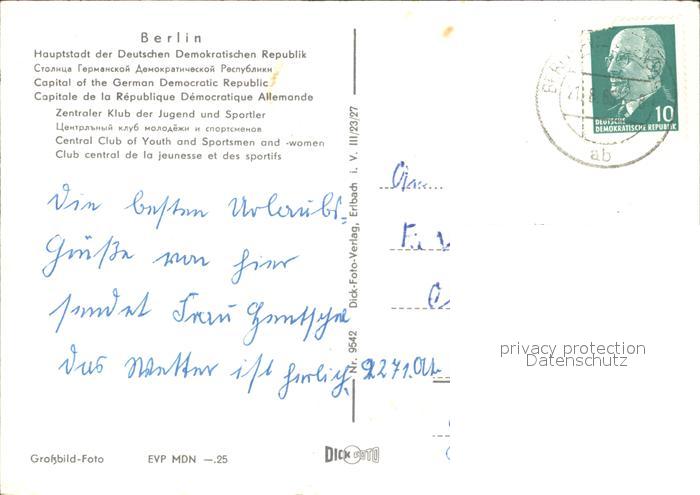 Berlin
Hauptstadt der Deutschen Demokratischen Republik
Столица Германской Демократической Республики
Capital of the German Democratic Republic
Capitale de la République Démocratique Allemande
Zentraler Klub der Jugend und Sportler
Центрльный клуб молодёжи и спортсменов
Central Club of Youth and Sportsmen and -women
Club central de la jeunesse et des sportifs
Die besten Urlaubs=
Grüße von hier
sendet Frau Hentschel
das Wetter ist herlich.
Großbild-Foto EVP MDN —.25
Nr. 9542 Dick-Foto-Verlag, Erlbach i. V. III/23/27
DICK FOTO
10
DEUTSCHE
DEMOKRATISCHE REPUBLIK
ab
2271.
privacy protection
Datenschutz